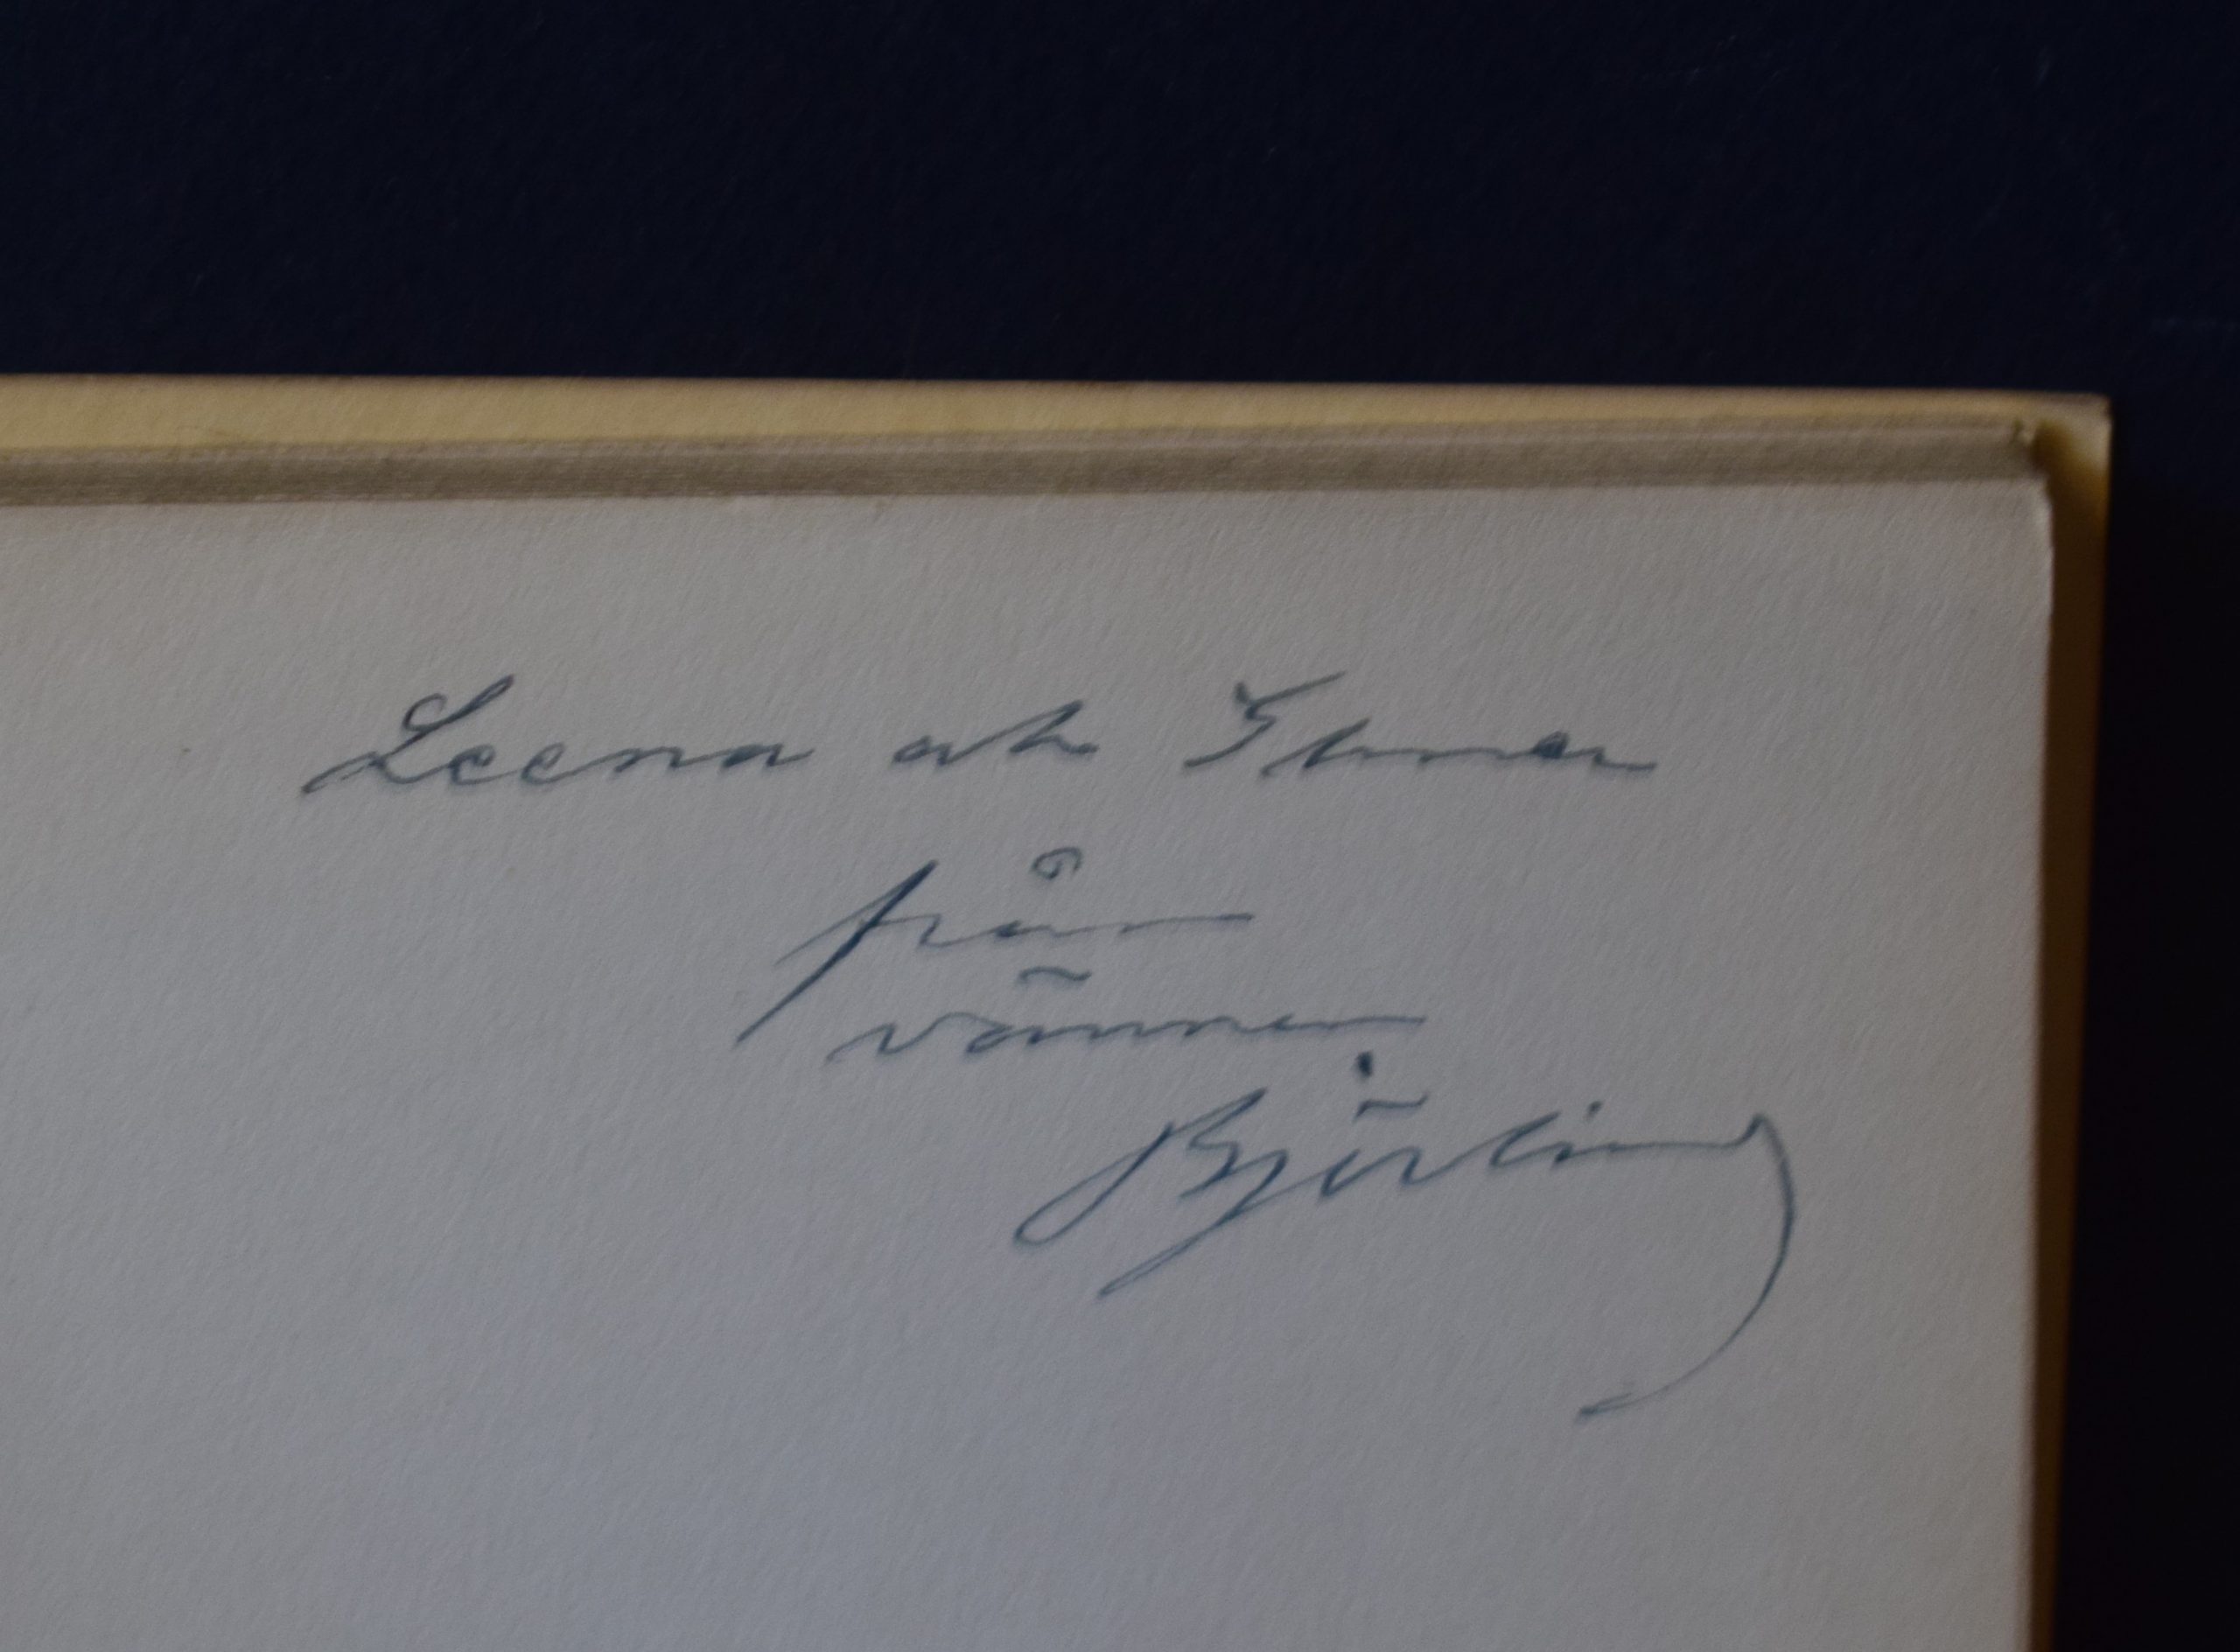 Leena och
från
vännen
Björling